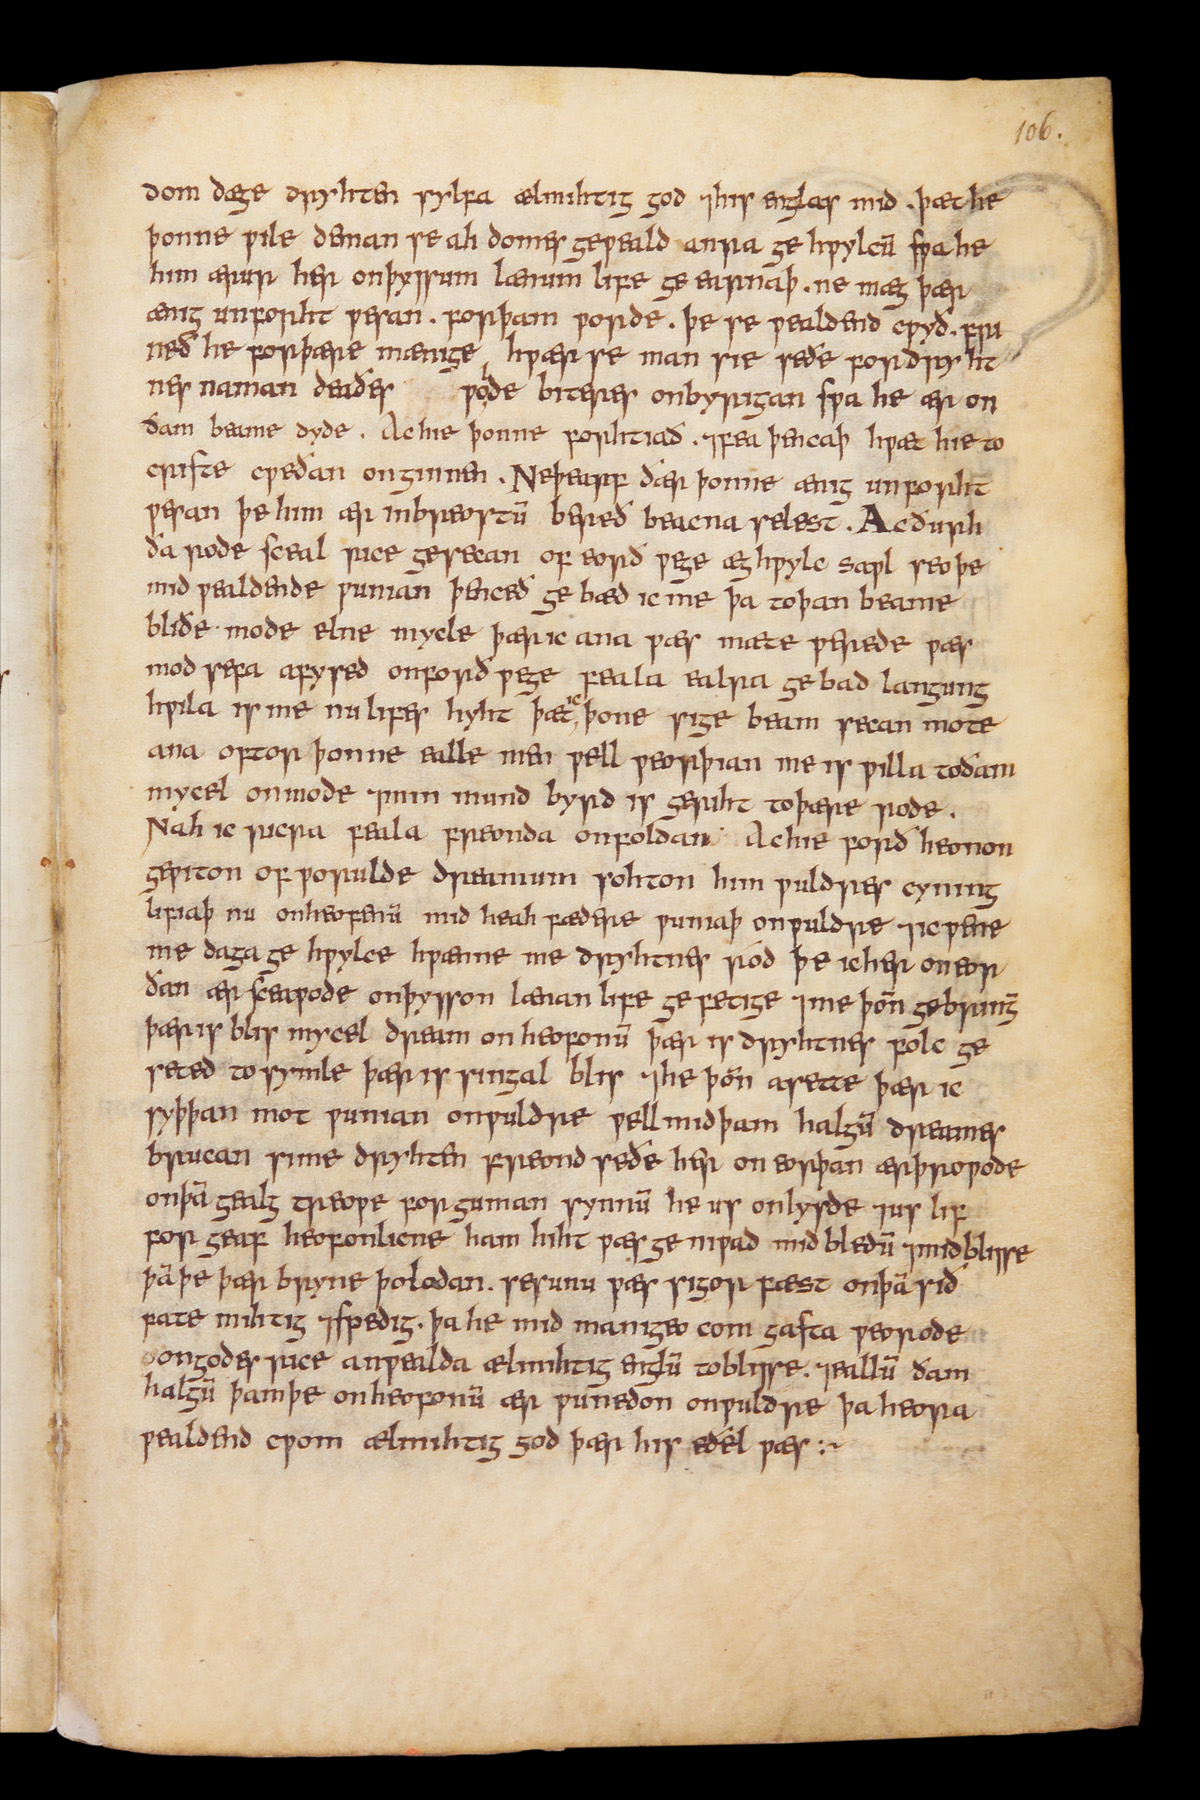 106.
dom dæge dryhten sylfa ælmihtig god ⁊his englas mid . þæt he
þonne ƿile deman se ah domes geƿeald anra ge hƿylcū sƿa he
him ærur her onþyssum lænum life ge earnaþ . ne mæg þær
ænig unforht ƿesan . forþam ƿorde . þe se ƿealdend cƿyð . fri
neð he forþære mænige hƿær se man sie seðe fordryht
nes naman deaðes ƿolde biteres onbyrigan sƿa he ær on
ðam beame dyde . Ac hie þonne forhtiað . ⁊fea þencaþ hƿæt hie to
criste cƿeðan onginnen . Neþearf ðær þonne ænig unforht
ƿesan þe him ær inbreostū bereð beacna selest . Ac ðurh
ða rode sceal rice gesecan of eorð ƿege æghƿylc saƿl seo þe
mid ƿealdende ƿunian þenceð ge bæd ic me þa toþan beame
bliðe mode elne mycle þær ic ana ƿæs mæte ƿerede ƿæs
mod sefa afysed onforð ƿege feala ealra ge bad langung
hƿila is me nu lifes hyht þæt ic þone sige beam secan mote
ana oftor þonne ealle men ƿell ƿeorþian me is ƿilla toðam
mycel onmode ⁊min mund byrd is geriht toþære rode .
Nah ic ricra feala freonda onfoldan Ac hie forð heonon
geƿiton of ƿorulde dreamum sohton him ƿuldres cyning
lifiaþ nu onheofenū mid heah fædere ƿuniaþ onƿuldre ⁊ic ƿene
me daga ge hƿylce hƿænne me dryhtnes rod þe ic her on eor
ðan ær sceaƿode onþysson lænan life ge fetige ⁊me þon̄ gebringe
þær is blis mycel dream on heofonū þær is dryhtnes folc ge
seted to symle þær is singal blis ⁊he þon̄ asette þær ic
syþþan mot ƿunian onƿuldre ƿell mid þam halgū dreames
brucan si me dryhten freond seðe her on eorþan ær þroƿode
onþā gealg treoƿe for guman synnū he us onlysde ⁊us lif
for geaf heofonlicne ham hiht ƿæs ge niƿad mid bledū ⁊mid blisse
þā þe þær bryne þolodan . se sunu ƿæs sigor fæst onþā sið
fate mihtig ⁊sƿedig . þa he mid manigeo com gasta ƿeorode
ongodes rice anƿealda ælmihtig englū toblisse . ⁊eallū ðam
halgū þam þe onheofonū ær ƿunedon onƿuldre þa heora
ƿealdend cƿom ælmihtig god þær his eðel ƿæs :~